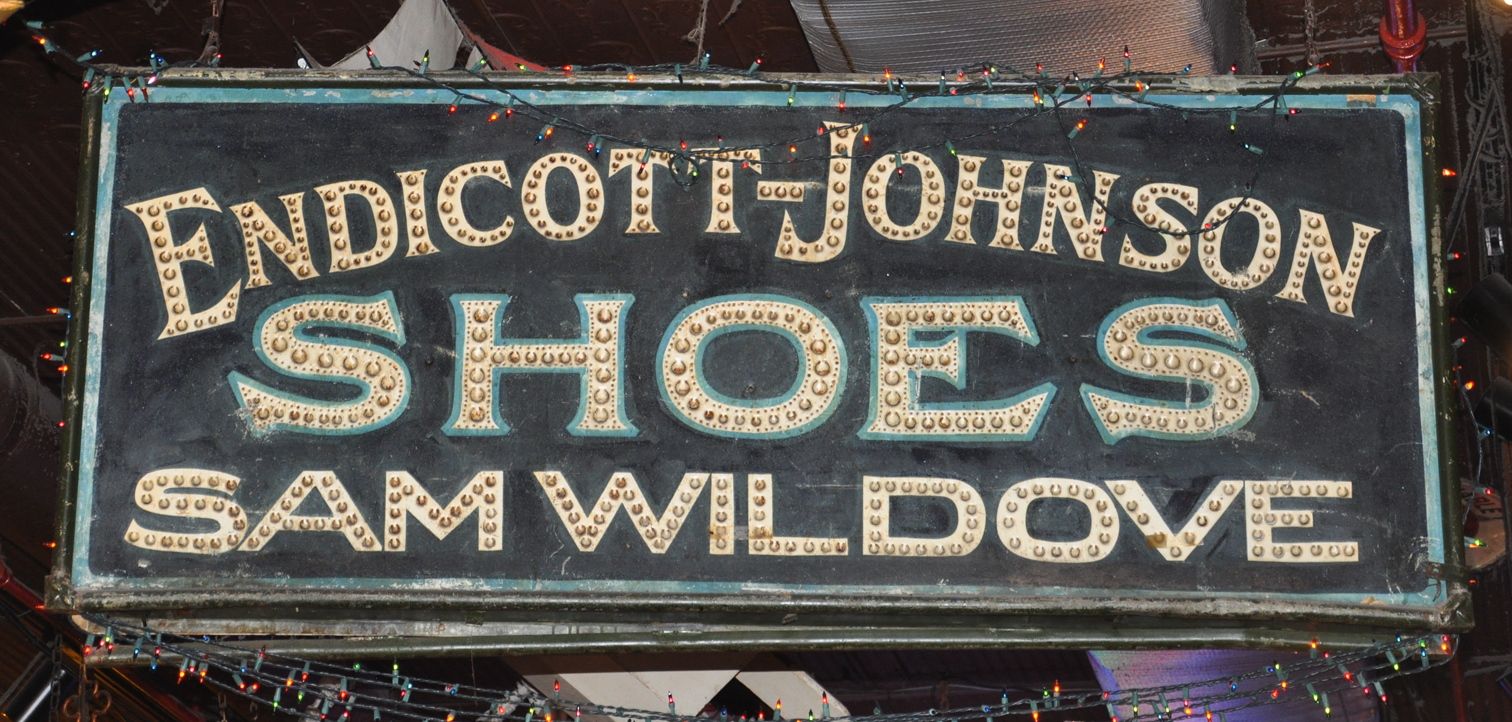 ENDICOTT-JOHNSON
SHOES
SAM WILDOVE